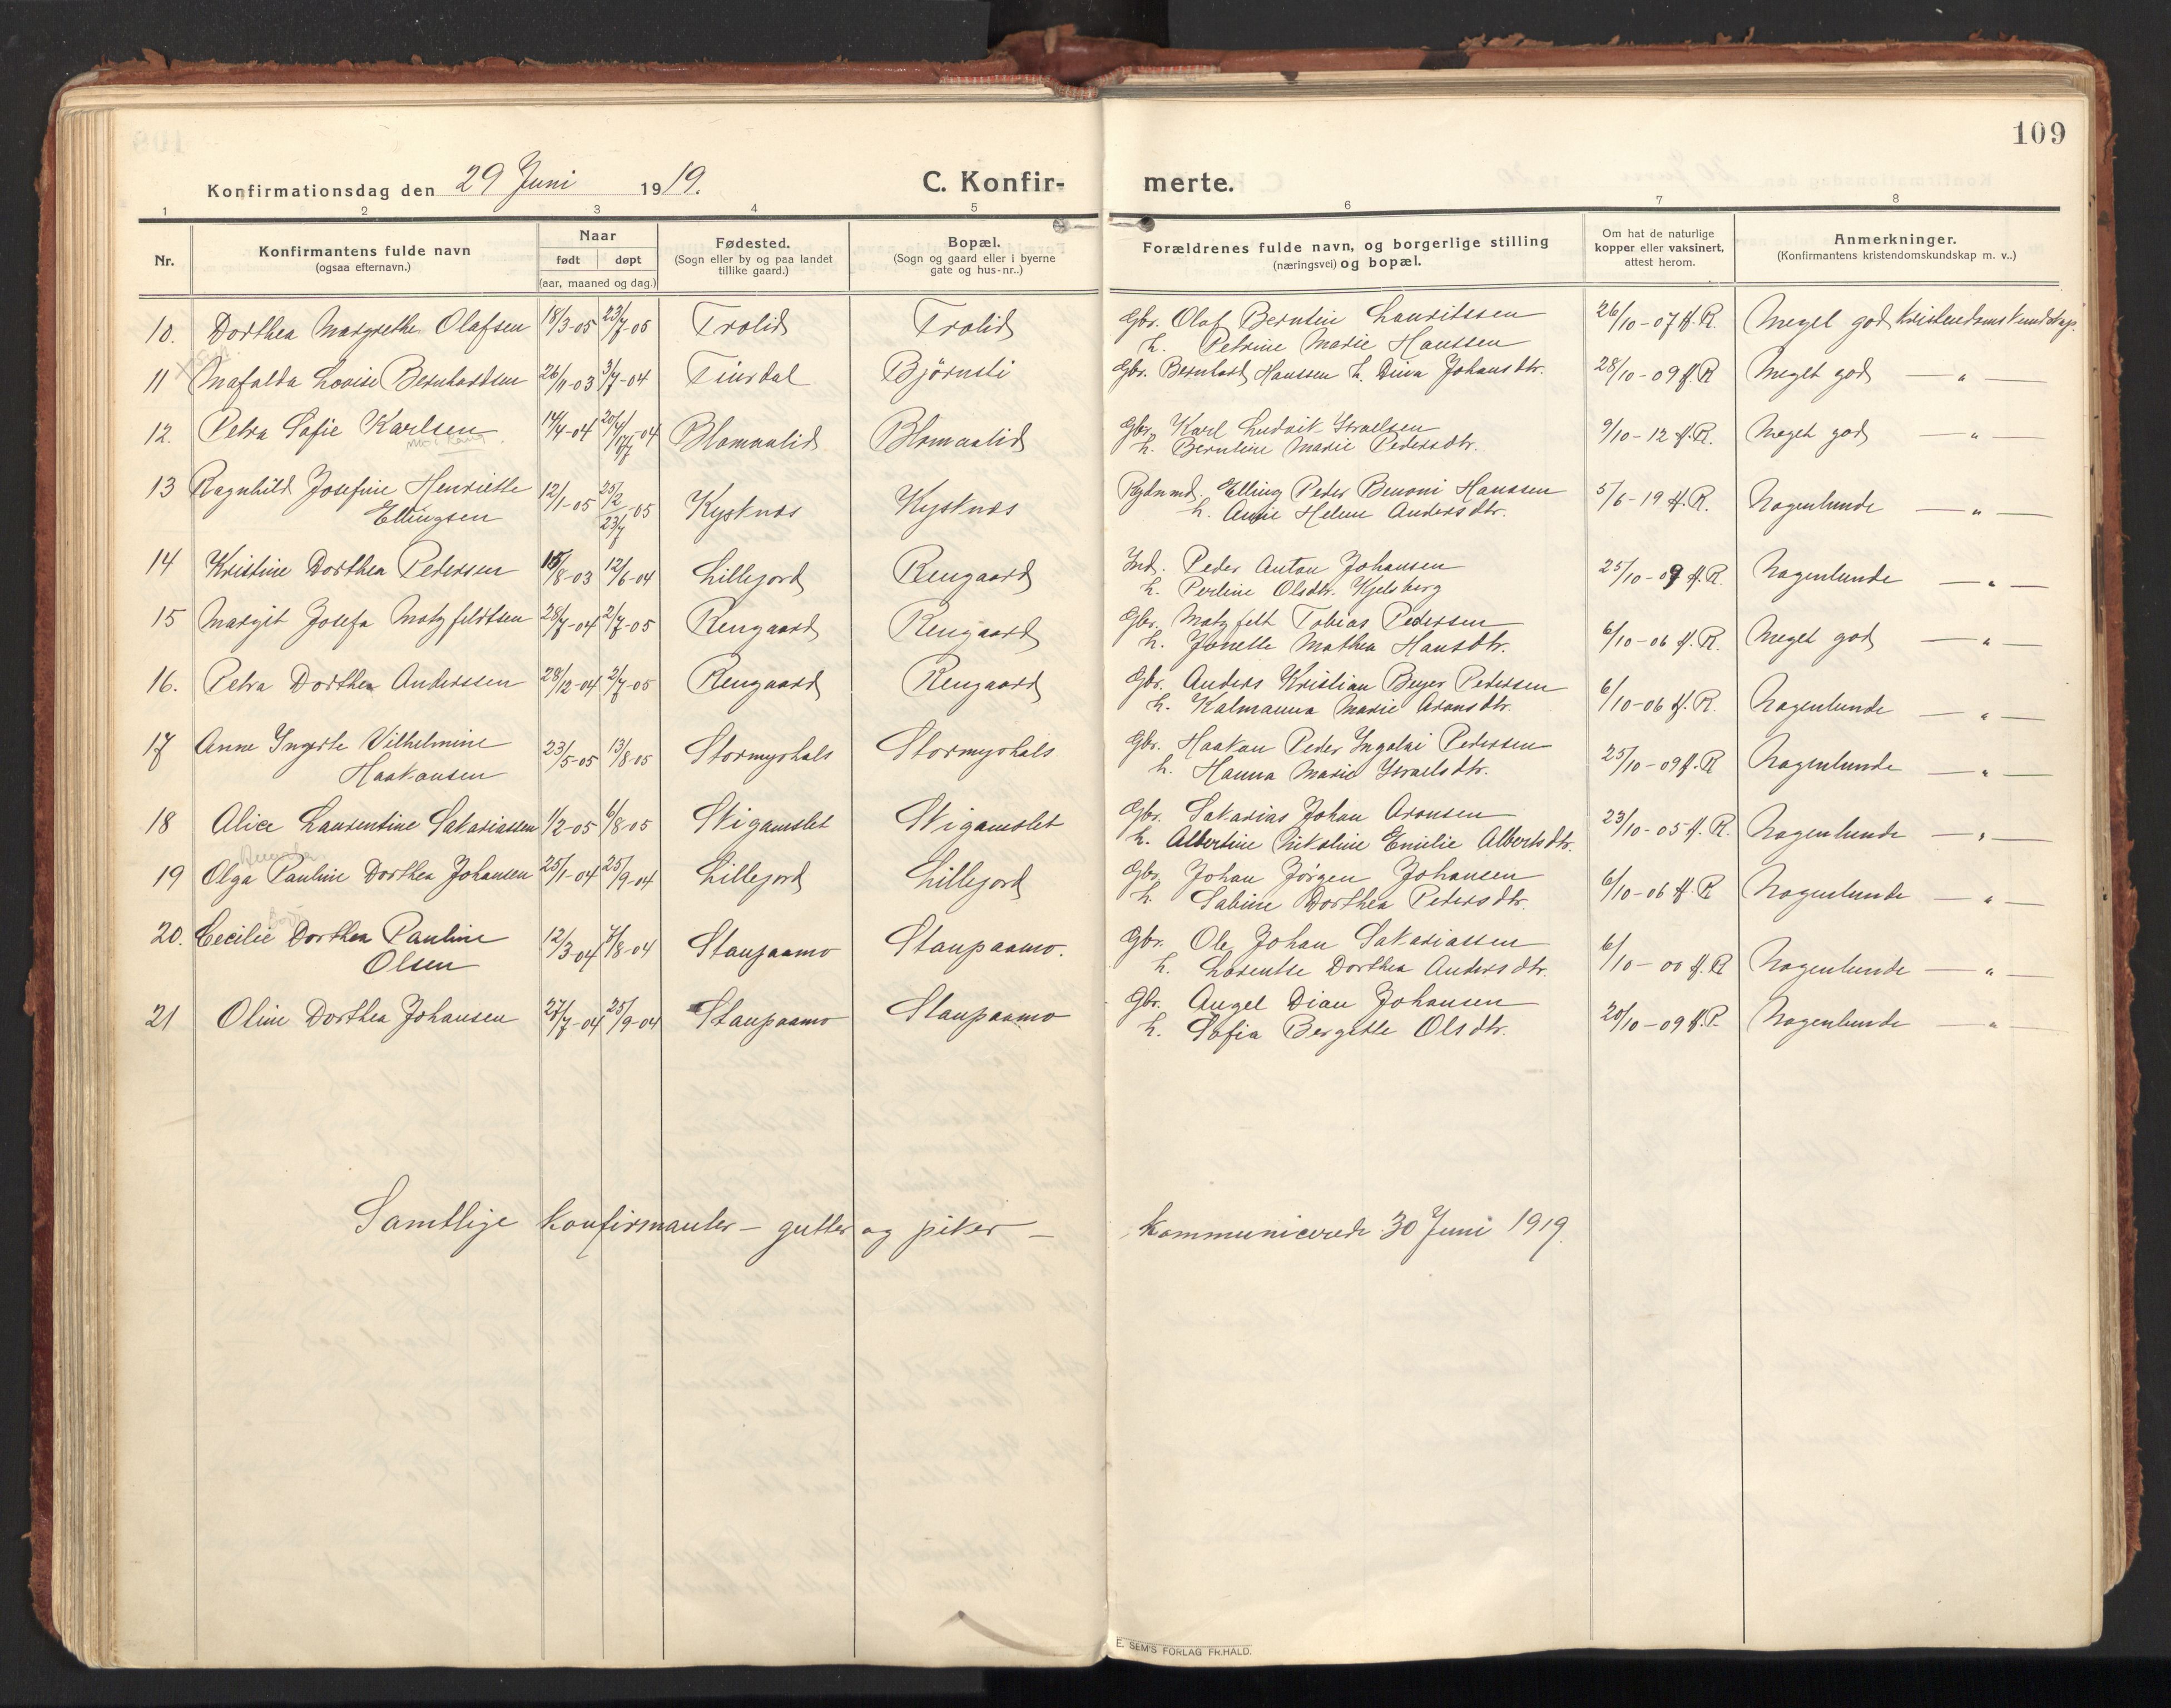 109
Konfirmationsdag den 29 Juni 1919.
C. Konfirmerte.
1 2 3 4 5 6 7 8
Nr.
Konfirmantens fulde navn
(ogsaa efternavn.)
Naar
født døpt
(aar, maaned og dag.)
Fødested.
(Sogn eller by og paa landet
tillike gaard.)
Bopæl.
(Sogn og gaard eller i byerne
gate og hus-nr..)
Forældrenes fulde navn, og borgerlige stilling
(næringsvei) og bopæl.
Om hat de naturlige
kopper eller vaksinert,
attest herom.
Anmerkninger.
(Konfirmantens kristendomskundskap m. v..)
10. Dorthea Margrethe Olafsen 18/3-05 23/7-05 Trolid Trolid Gbr. Olaf Berntin Lauritssen 26/10-07 A.R. Meget god Kristendomskundskap.
h. Petrine Marie Hanssen
11 Mafalda Lovise Bernhardsen 26/11-03 3/7-04 Finsdal Björnsti Gbr. Bernhard Hanssen h. Dina Johansdtr. 28/10-09 A.R Meget god — " —
12. Petra Sofie Karlsen 14/4-04 20/4 17/7-04 Blomaalid Blomaalid Gbr. Karl Ludvik Israelsen 9/10-12 A.R. Meget god — " —
h. Berntine Marie Pedersdtr.
13 Ragnhild Josefine Henriette 12/1-05 25/2 23/7-05 Kysknes Kysknes Rydnmd. Elling Peder Benoni Hanssen 5/6-19 A.R. Nogenlunde — " —
Ellingsen h. Anne Helene Andersdtr.
14 Kristine Dorthea Pederssen 15/8-03 12/6-04 Lillejord Rengaard Ind. Peder Anton Johansen 25/10-09 A.R. Nogenlunde — " —
h. Perline Olsdtr. Kjelsberg
15 Margit Josefa Motzfeldtsen 28/7-04 2/7-05 Rengaard Rengaard Gbr. Motzfelt Tobias Pederssen 6/10-06 A.R. Meget god — " —
h. Jonette Mathea Hansdtr.
16. Petra Dorthea Anderssen 28/12-04 2/7-05 Rengaard Rengaard Gbr. Anders Kristian Beyer Pederssen 6/10-06 A.R. Nogenlunde — " —
h. Kalmanna Marie Aronsdtr.
17 Anne Ingerte Vilhelmine 23/5-05 13/8-05 Stormyrhals Stormyrhals Gbr. Haakon Peder Ingolai Pederssen 25/10-09 A.R Nogenlunde — " —
Haakonsen h. Hanna Marie Israelsdtr.
18 Alice Laurentine Sakariassen 1/2-05 6/8-05 Stigamslet Stigamslet Gbr. Sakarias Johan Aronsen 23/10-05 A.R. Nogenlunde — " —
h. Albertine Nikoline Emilie Albertsdtr.
19 Olga Pauline Dorthea Johansen 25/1-04 25/9-04 Lillejord Lillejord Gbr. Johan Jörgen Johansen 6/10-06 A.R Nogenlunde — " —
h. Sabine Dorthea Petersdtr.
20. Cecilie Dorthea Pauline 12/3-04 7/8-04 Staupaamo Staupaamo. Gbr. Ole Johan Sakariassen 6/10-00 A.R Nogenlunde — " —
Olsen h. Lorentse Dorthea Andersdtr.
21 Oline Dorthea Johansen 27/7-04 25/9-04 Staupaamo Staupaamo Gbr. Angel Dian Johansen 20/10-09 A.R. Nogenlunde — " —
h. Sofia Bergitte Olsdtr.
Samtlige konfirmanter – gutter og piker – kommunicerede 30 Juni 1919.
E. SEM'S FORLAG FR.HALD.